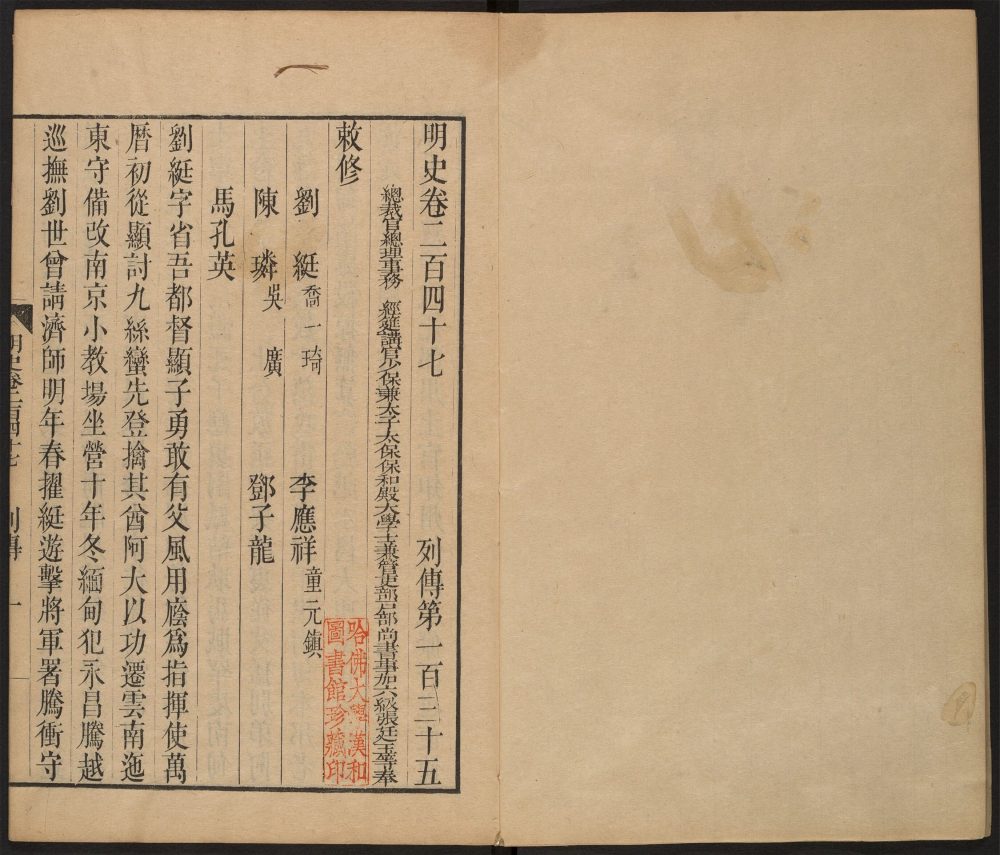 明史卷二百四十七 列傳第一百三十五
總裁官總理事務 經筵講官少保兼太子太保保和殿大學士兼管吏部戶部尚書事加六級張廷玉等奉
敕修
劉綎 喬一琦 李應祥 童元鎮
陳璘 吳廣 鄧子龍
馬孔英
劉綎字省吾都督顯子勇敢有父風用廕爲指揮使萬
曆初從顯討九絲蠻先登擒其酋阿大以功遷雲南迤
東守備改南京小教場坐營十年冬緬甸犯永昌騰越
巡撫劉世曾請濟師明年春擢綎遊擊將軍署騰衝守
明史卷二百四十七 列傳 一
哈佛大學漢和
圖書館珍藏印